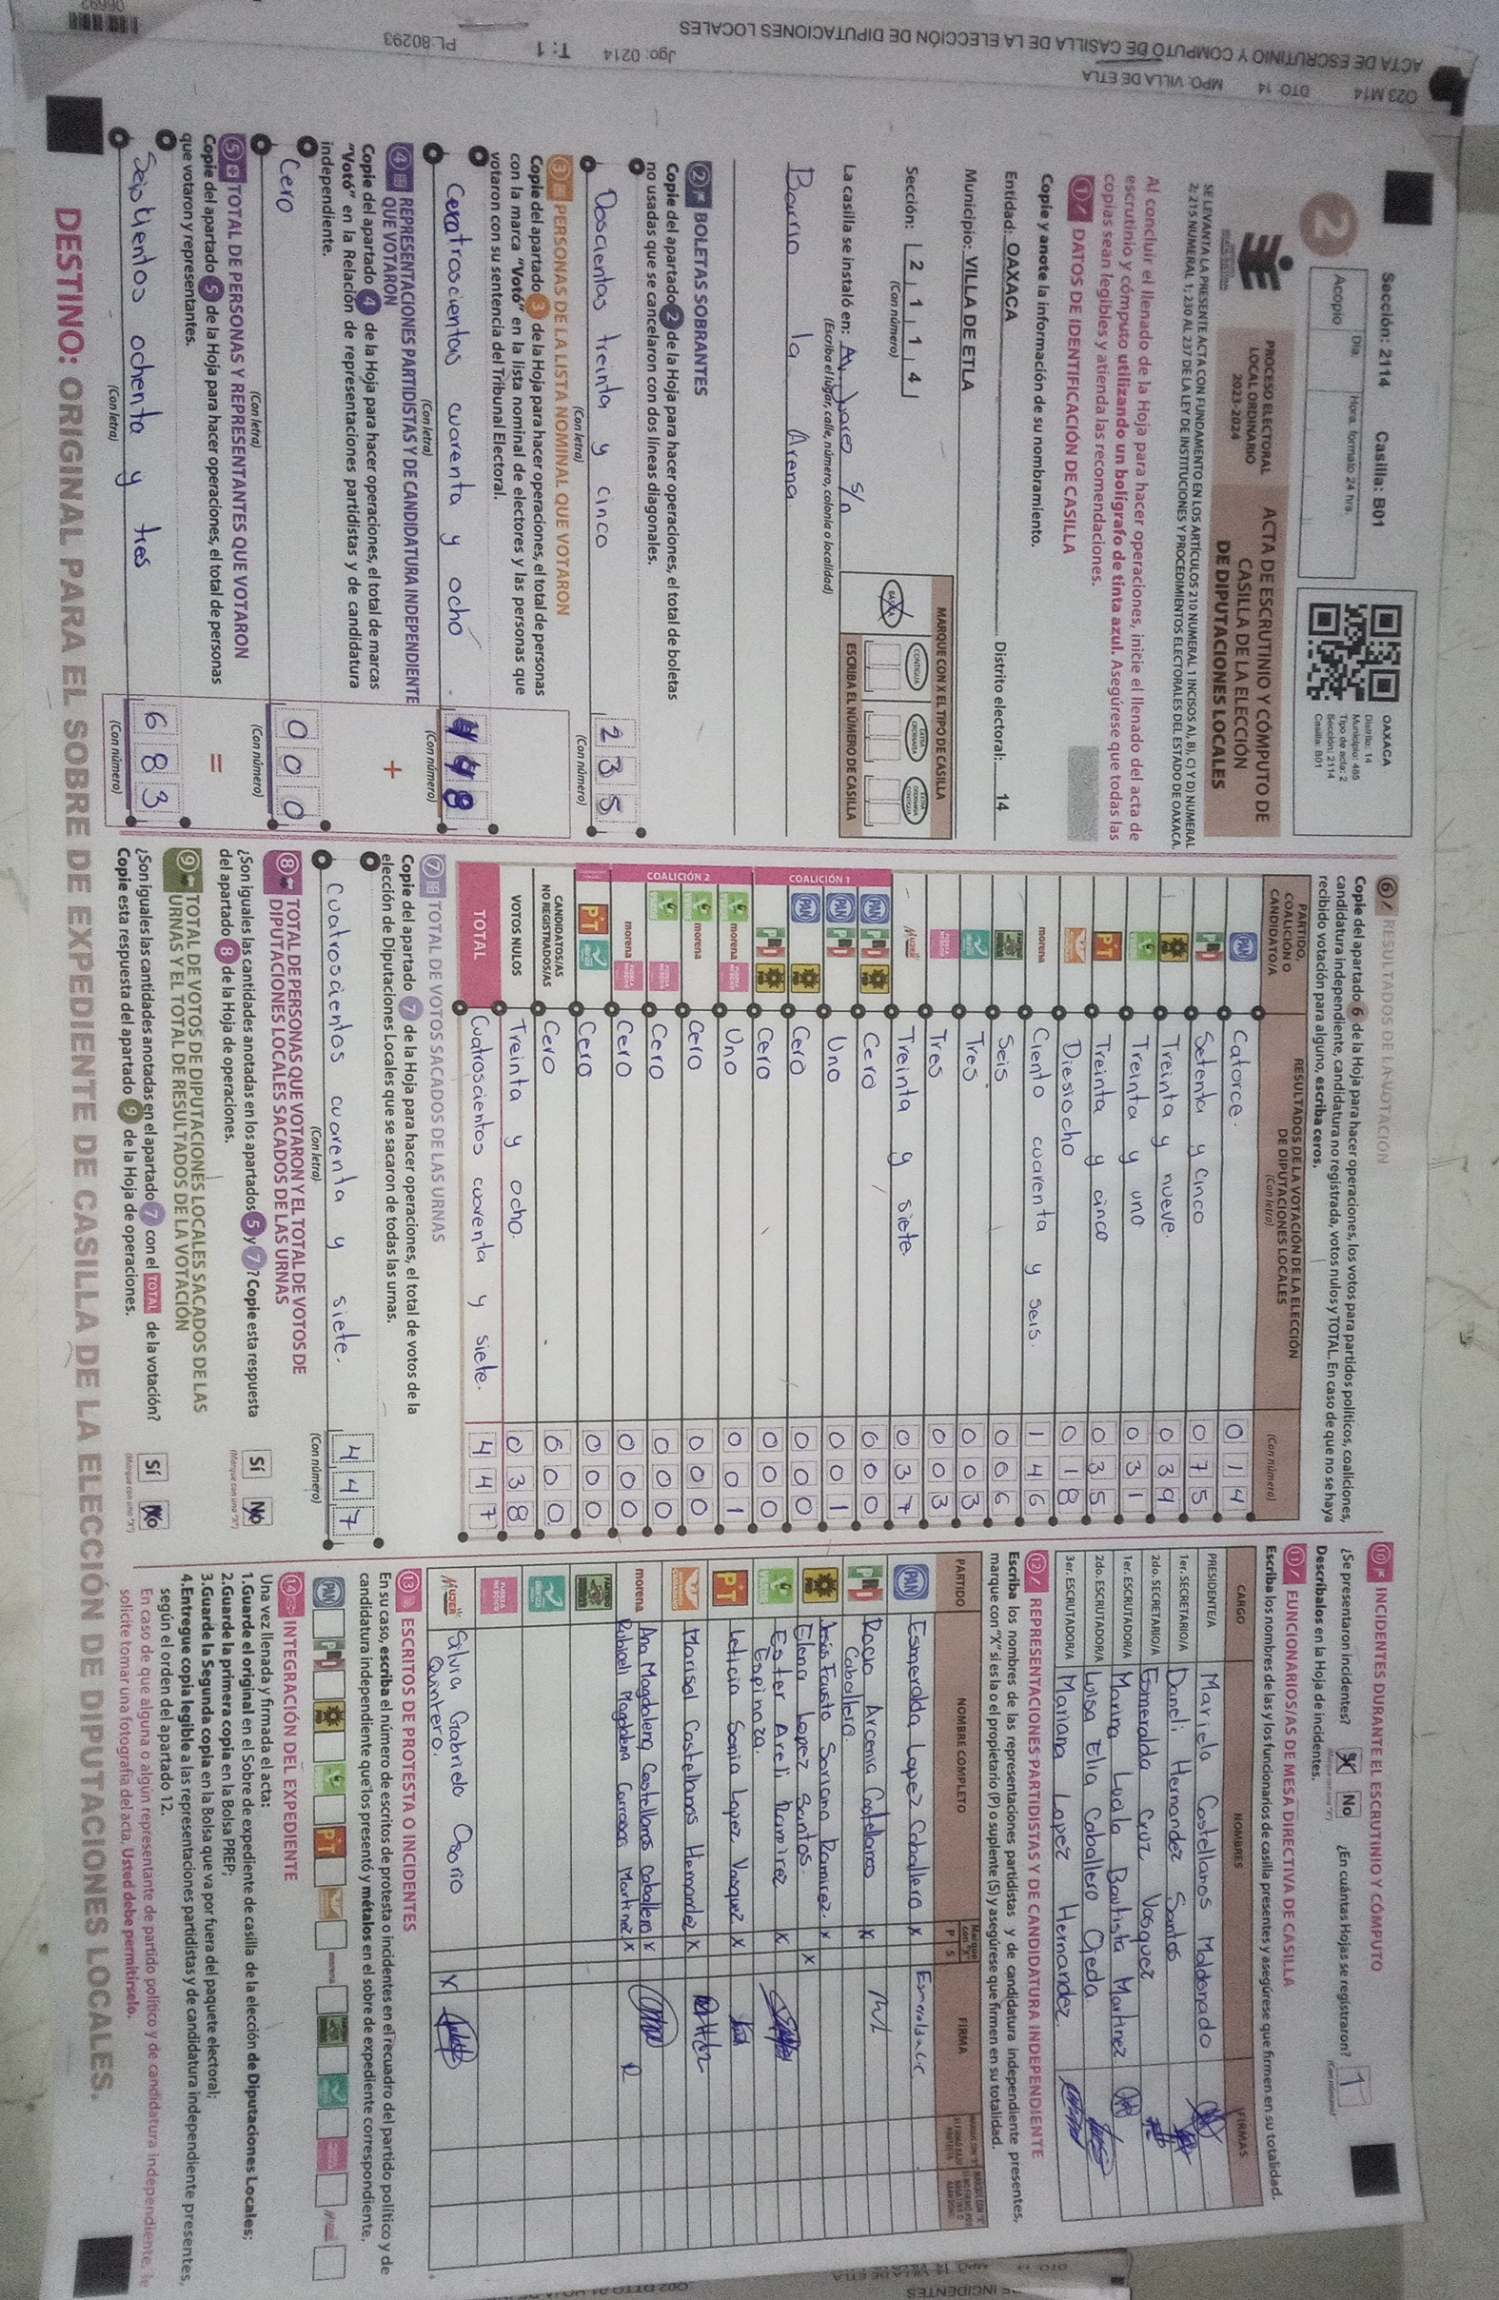 Sección: 2114 Casilla: B01
2
Acopio
Día:
Hora, formato 24 hrs.
OAXACA
Distrito: 14
Municipio: 485
Tipo de acta: 2
Sección: 2114
Casilla: B01
PROCESO ELECTORAL
LOCAL ORDINARIO
2023-2024
ACTA DE ESCRUTINIO Y CÓMPUTO DE
CASILLA DE LA ELECCIÓN
DE DIPUTACIONES LOCALES
SE LEVANTA LA PRESENTE ACTA CON FUNDAMENTO EN LOS ARTÍCULOS 210 NUMERAL 1 INCISOS A), B), C) Y D) NUMERAL
2; 215 NUMERAL 1; 230 AL 237 DE LA LEY DE INSTITUCIONES Y PROCEDIMIENTOS ELECTORALES DEL ESTADO DE OAXACA.
Al concluir el llenado de la Hoja para hacer operaciones, inicie el llenado del acta de
escrutinio y cómputo utilizando un bolígrafo de tinta azul. Asegúrese que todas las
copias sean legibles y atienda las recomendaciones.
1 DATOS DE IDENTIFICACIÓN DE CASILLA
Copie y anote la información de su nombramiento.
Entidad: OAXACA Distrito electoral: 14
Municipio: VILLA DE ETLA
Sección: 2 1 1 4
(Con número)
MARQUE CON X EL TIPO DE CASILLA
BÁSICA CONTIGUA EXTRAORDINARIA EXTRAORDINARIA CONTIGUA
ESCRIBA EL NÚMERO DE CASILLA
La casilla se instaló en: Av. Juarez S/n
(Escriba el lugar, calle, número, colonia o localidad)
Barrio la Arena
2 BOLETAS SOBRANTES
Copie del apartado 2 de la Hoja para hacer operaciones, el total de boletas
no usadas que se cancelaron con dos líneas diagonales.
Doscientos treinta y cinco 2 3 5
(Con letra) (Con número)
3 PERSONAS DE LA LISTA NOMINAL QUE VOTARON
Copie del apartado 3 de la Hoja para hacer operaciones, el total de personas
con la marca "Votó" en la lista nominal de electores y las personas que
votaron con su sentencia del Tribunal Electoral.
cuarenta y ocho 4 4 8
(Con letra) (Con número)
4 REPRESENTACIONES PARTIDISTAS Y DE CANDIDATURA INDEPENDIENTE
QUE VOTARON
Copie del apartado 4 de la Hoja para hacer operaciones, el total de marcas
"Votó" en la Relación de representaciones partidistas y de candidatura
independiente.
+
Cero 0 0 0
(Con letra) (Con número)
5 TOTAL DE PERSONAS Y REPRESENTANTES QUE VOTARON
Copie del apartado 5 de la Hoja para hacer operaciones, el total de personas
que votaron y representantes.
=
Seiscientos ochenta y tres 6 8 3
(Con letra) (Con número)
6 RESULTADOS DE LA VOTACIÓN
Copie del apartado 6 de la Hoja para hacer operaciones, los votos para partidos políticos, coaliciones,
candidatura independiente, candidatura no registrada, votos nulos y TOTAL. En caso de que no se haya
recibido votación para alguno, escriba ceros.
PARTIDO, COALICIÓN O CANDIDATO/A
RESULTADOS DE LA VOTACIÓN DE LA ELECCIÓN
DE DIPUTACIONES LOCALES
(Con letra) (Con número)
PAN Catorce. 0 1 4
PRI Setenta y cinco 0 7 5
PRD Treinta y nueve. 0 3 9
VERDE Treinta y uno 0 3 1
PT Treinta y cinco 0 3 5
Diesiocho 0 1 8
morena Ciento cuarenta y seis. 1 4 6
Seis 0 0 6
Tres 0 0 3
Tres 0 0 3
MUJER Treinta y siete 0 3 7
COALICIÓN 1
PAN PRI PRD Cero 0 0 0
PAN PRI Uno 0 0 1
PAN PRD Cero 0 0 0
PRI PRD Cero 0 0 0
COALICIÓN 2
VERDE morena Uno 0 0 1
VERDE morena Cero 0 0 0
VERDE Cero 0 0 0
morena Cero 0 0 0
PT Cero 0 0 0
CANDIDATOS/AS
NO REGISTRADOS/AS Cero 0 0 0
VOTOS NULOS Treinta y ocho. 0 3 8
TOTAL Cuatroscientos cuarenta y siete. 4 4 7
7 TOTAL DE VOTOS SACADOS DE LAS URNAS
Copie del apartado 7 de la Hoja para hacer operaciones, el total de votos de la
elección de Diputaciones Locales que se sacaron de todas las urnas.
Cuatroscientos cuarenta y siete. 4 4 7
(Con letra) (Con número)
8 TOTAL DE PERSONAS QUE VOTARON Y EL TOTAL DE VOTOS DE
DIPUTACIONES LOCALES SACADOS DE LAS URNAS
¿Son iguales las cantidades anotadas en los apartados 5 y 7? Copie esta respuesta
del apartado 8 de la Hoja de operaciones.
Sí No
(Marque con una "X")
9 TOTAL DE VOTOS DE DIPUTACIONES LOCALES SACADOS DE LAS
URNAS Y EL TOTAL DE RESULTADOS DE LA VOTACIÓN
¿Son iguales las cantidades anotadas en el apartado 7 con el TOTAL de la votación?
Copie esta respuesta del apartado 9 de la Hoja de operaciones.
Sí No
(Marque con una "X")
10 INCIDENTES DURANTE EL ESCRUTINIO Y CÓMPUTO
¿Se presentaron incidentes? Sí No ¿En cuántas Hojas se registraron? 1
Descríbalos en la Hoja de incidentes.
11 FUNCIONARIOS/AS DE MESA DIRECTIVA DE CASILLA
Escriba los nombres de las y los funcionarios de casilla presentes y asegúrese que firmen en su totalidad.
CARGO NOMBRES FIRMAS
PRESIDENTE/A Mariela Castellanos Maldonado
1er. SECRETARIO/A Daneli Hernandez Santos
2do. SECRETARIO/A Esmeralda Cruz Vasquez
1er. ESCRUTADOR/A Marina Lyala Bautista Martinez
2do. ESCRUTADOR/A Luisa Elia Caballero Ojeda
3er. ESCRUTADOR/A Mariana Lopez Hernandez.
12 REPRESENTACIONES PARTIDISTAS Y DE CANDIDATURA INDEPENDIENTE
Escriba los nombres de las representaciones partidistas y de candidatura independiente presentes,
marque con "X" si es la o el propietario (P) o suplente (S) y asegúrese que firmen en su totalidad.
PARTIDO NOMBRE COMPLETO P S FIRMA
PAN Esmeralda Lopez Caballero X
PRI Rocio Arcenia Castellanos Caballero. X
PRD Jesús Fausto Soriano Ramirez. X
Elena Lopez Santos. X
VERDE Ester Areli Ramirez Espinoza. X
PT Leticia Sonia Lopez Vasquez X
Marisol Castellanos Hernandez X
morena Ana Magdalena Castellanos Caballero X
Rubiceli Magdalena Carrasco Martinez X
MUJER Silvia Gabriela Osorio Quintero. X
13 ESCRITOS DE PROTESTA O INCIDENTES
En su caso, escriba el número de escritos de protesta o incidentes en el recuadro del partido político y de
candidatura independiente que los presentó y métalos en el sobre de expediente correspondiente.
14 INTEGRACIÓN DEL EXPEDIENTE
Una vez llenada y firmada el acta:
1.Guarde el original en el Sobre de expediente de casilla de la elección de Diputaciones Locales;
2.Guarde la primera copia en la Bolsa PREP;
3.Guarde la Segunda copia en la Bolsa que va por fuera del paquete electoral;
4.Entregue copia legible a las representaciones partidistas y de candidatura independiente presentes,
según el orden del apartado 12.
En caso de que alguna o algún representante de partido político y de candidatura independiente, le
solicite tomar una fotografía del acta, Usted debe permitírselo.
DESTINO: ORIGINAL PARA EL SOBRE DE EXPEDIENTE DE CASILLA DE LA ELECCIÓN DE DIPUTACIONES LOCALES.
O23 M14 DTO: 14 MPO: VILLA DE ETLA
ACTA DE ESCRUTINIO Y CÓMPUTO DE CASILLA DE LA ELECCIÓN DE DIPUTACIONES LOCALES
Jgo: 0214 T: 1 PL:80293
INCIDENTES